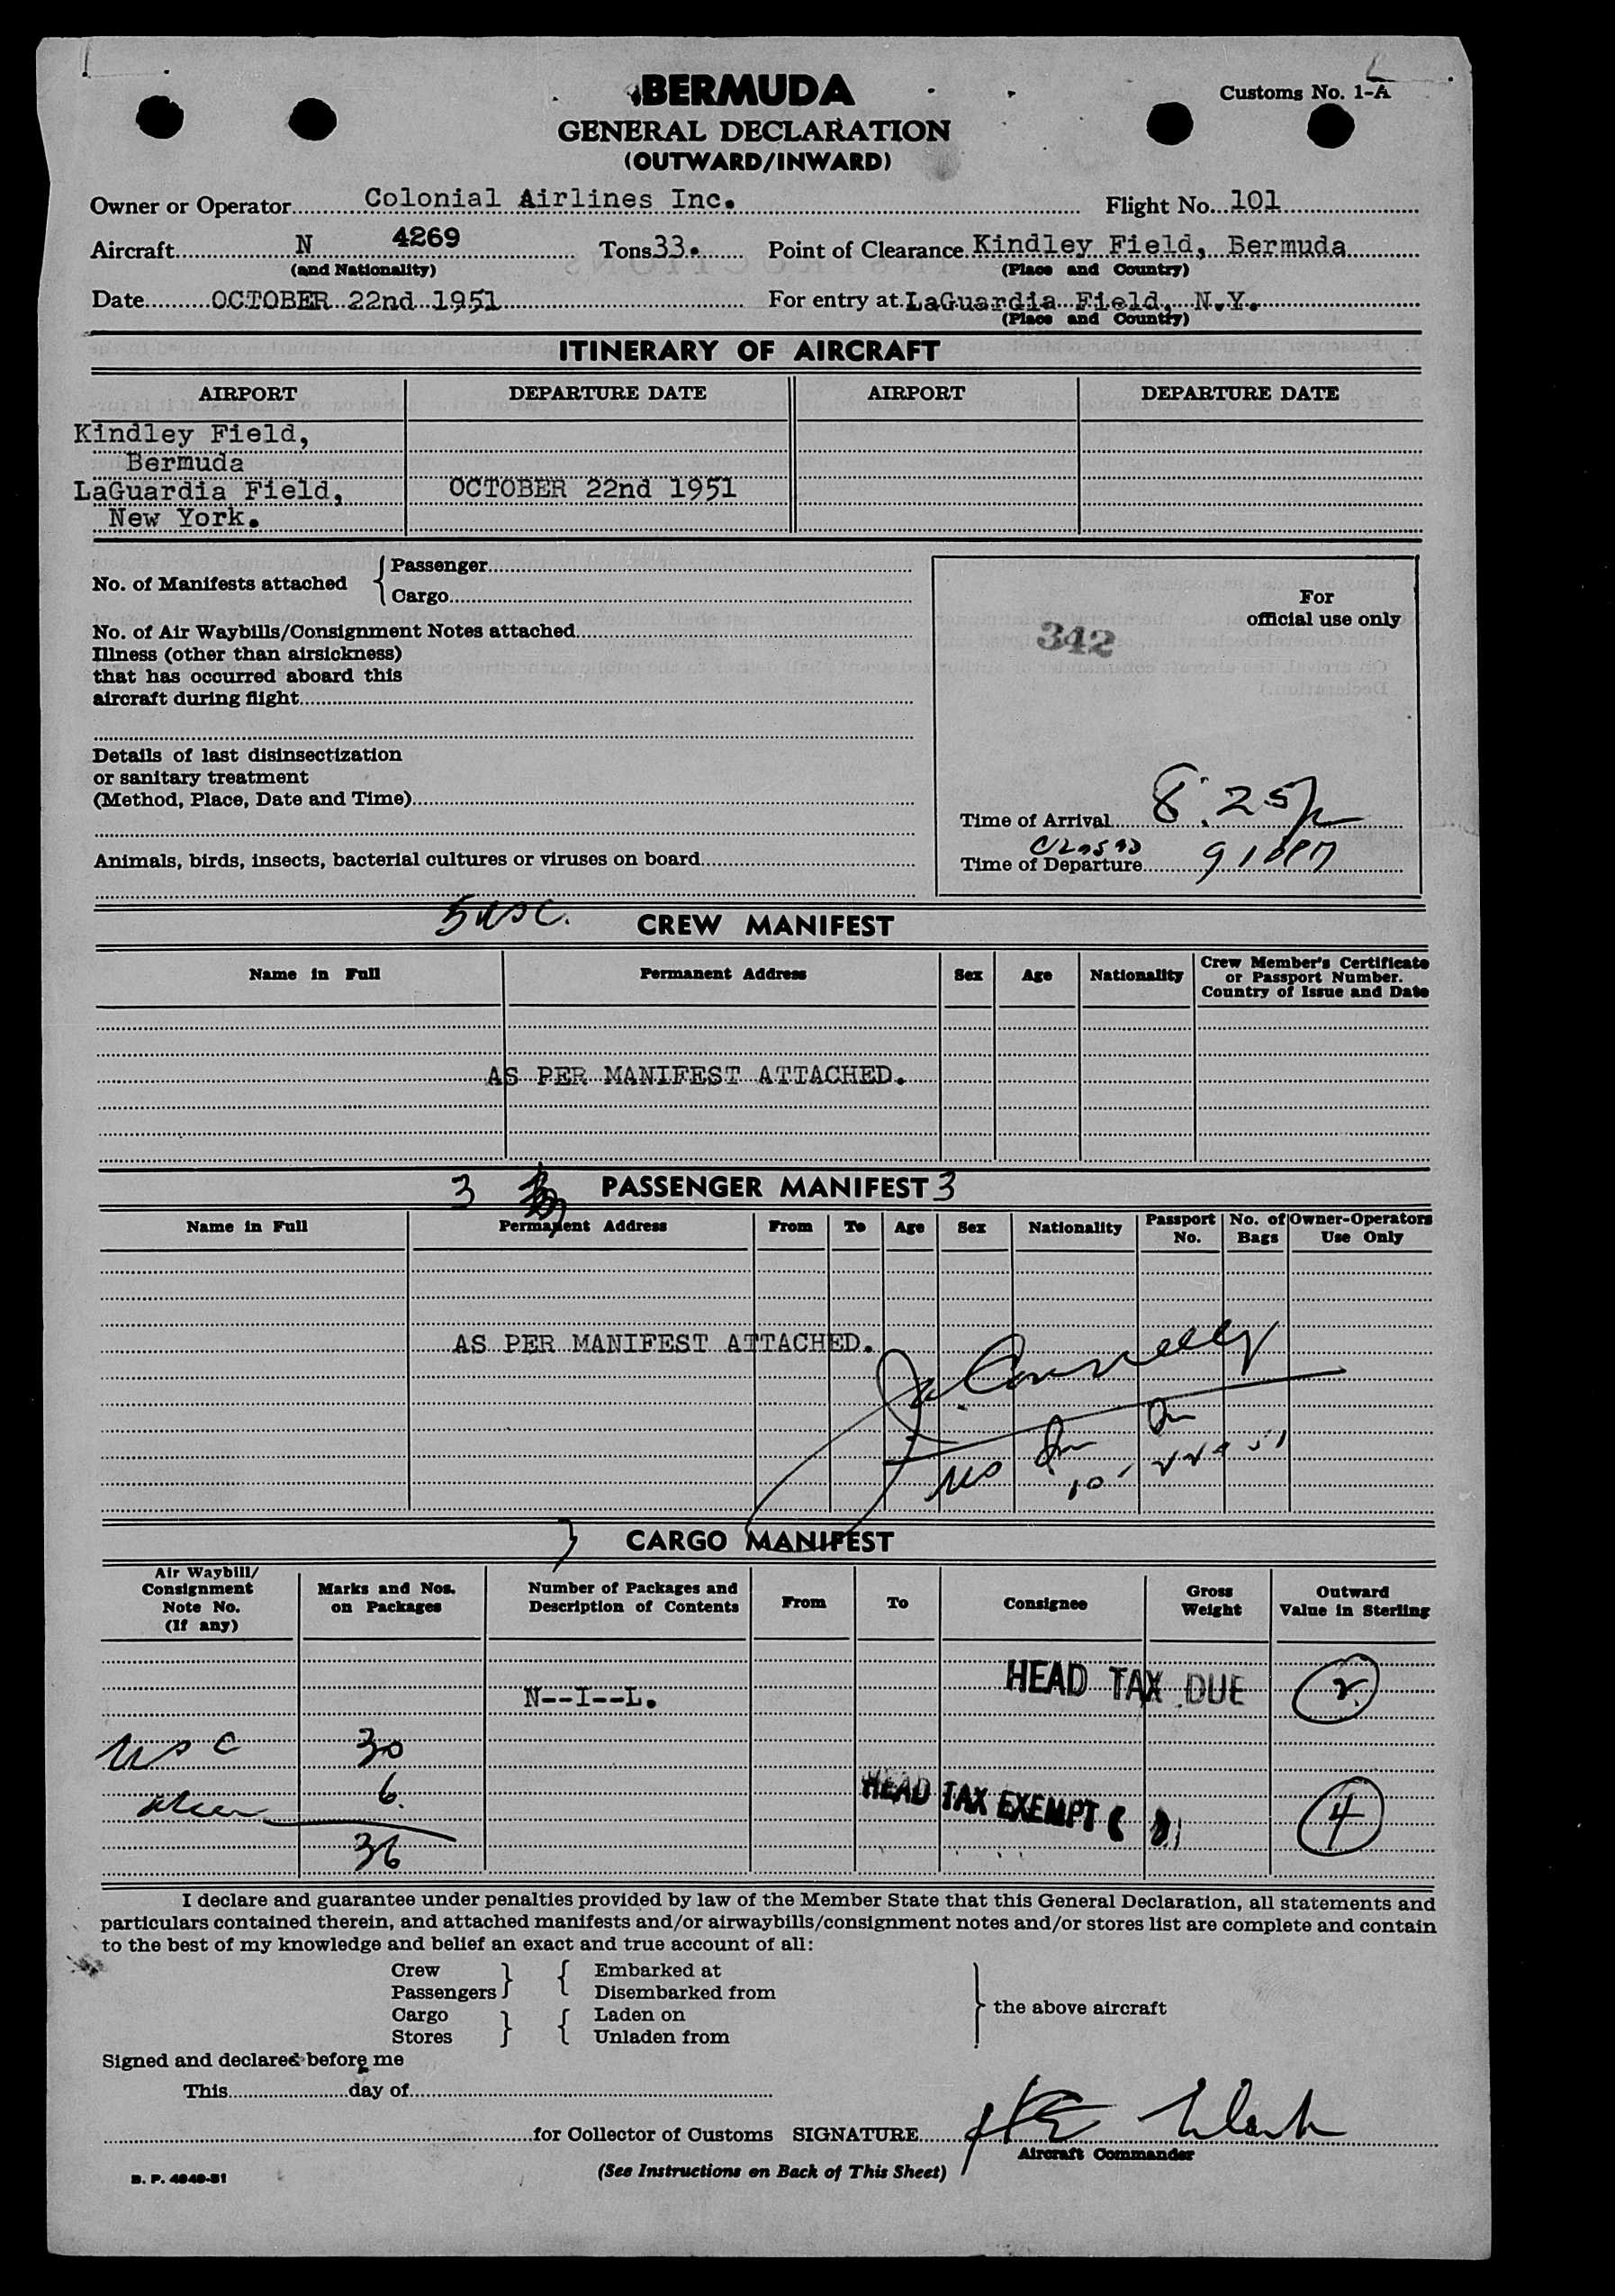 BERMUDA
Customs No. 1-A
GENERAL DECLARATION
(OUTWARD/INWARD)
Owner or Operator Colonial Airlines Inc. Flight No. 101
Aircraft N 4269 Tons 33. Point of Clearance Kindley Field, Bermuda
(and Nationality) (Place and Country)
Date OCTOBER 22nd 1951 For entry at LaGuardia Field, N.Y.
(Place and Country)
ITINERARY OF AIRCRAFT
AIRPORT DEPARTURE DATE AIRPORT DEPARTURE DATE
Kindley Field,
Bermuda
LaGuardia Field, OCTOBER 22nd 1951
New York.
No. of Manifests attached { Passenger
Cargo
No. of Air Waybills/Consignment Notes attached
Illness (other than airsickness)
that has occurred aboard this
aircraft during flight
Details of last disinsectization
or sanitary treatment
(Method, Place, Date and Time)
Animals, birds, insects, bacterial cultures or viruses on board
For
official use only
342
Time of Arrival 8:25p
Closed
Time of Departure 910PM
5 USC. CREW MANIFEST
Name in Full Permanent Address Sex Age Nationality Crew Member's Certificate
or Passport Number.
Country of Issue and Date
AS PER MANIFEST ATTACHED.
3 PASSENGER MANIFEST 3
Name in Full Permanent Address From To Age Sex Nationality Passport No. No. of Bags Owner-Operators Use Only
AS PER MANIFEST ATTACHED.
Connelly
US
10-22-51
CARGO MANIFEST
Air Waybill/
Consignment
Note No.
(If any)
Marks and Nos.
on Packages
Number of Packages and
Description of Contents
From To Consignee
Gross
Weight
Outward
Value in Sterling
HEAD TAX DUE 2
N--I--L.
USC 30
alien 6
HEAD TAX EXEMPT ( ) 4
36
I declare and guarantee under penalties provided by law of the Member State that this General Declaration, all statements and
particulars contained therein, and attached manifests and/or airwaybills/consignment notes and/or stores list are complete and contain
to the best of my knowledge and belief an exact and true account of all:
Crew } { Embarked at
Passengers } { Disembarked from
} the above aircraft
Cargo } { Laden on
Stores } { Unladen from
Signed and declared before me
This day of
for Collector of Customs SIGNATURE HE Clark
Aircraft Commander
B. P. 4040-51
(See Instructions on Back of This Sheet)